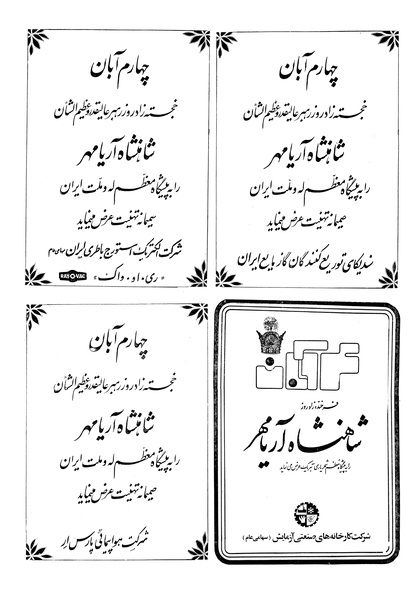 چهارم آبان
خجسته زادروز رهبر عالیقدر و عظیم الشأن
شاهنشاه آریامهر
را به پیشگاه معظم له و ملت ایران
صمیمانه تهنیت عرض مینماید
سندیکای توزیع کنندگان گاز مایع ایران
چهارم آبان
خجسته زادروز رهبر عالیقدر و عظیم الشأن
شاهنشاه آریامهر
را به پیشگاه معظم له و ملت ایران
صمیمانه تهنیت عرض مینماید
شرکت الکتریک استوریج باطری ایران سهامی عام
« ری . او . واک » RAY-O-VAC
۴ آبان
فرخنده زادروز
شاهنشاه آریامهر
را به پیشگاه معظم تبریک عرض می نماید
شرکت کارخانه های صنعتی آزمایش (سهامی عام)
چهارم آبان
خجسته زادروز رهبر عالیقدر و عظیم الشأن
شاهنشاه آریامهر
را به پیشگاه معظم له و ملت ایران
صمیمانه تهنیت عرض مینماید
شرکت هواپیمائی پارس ار